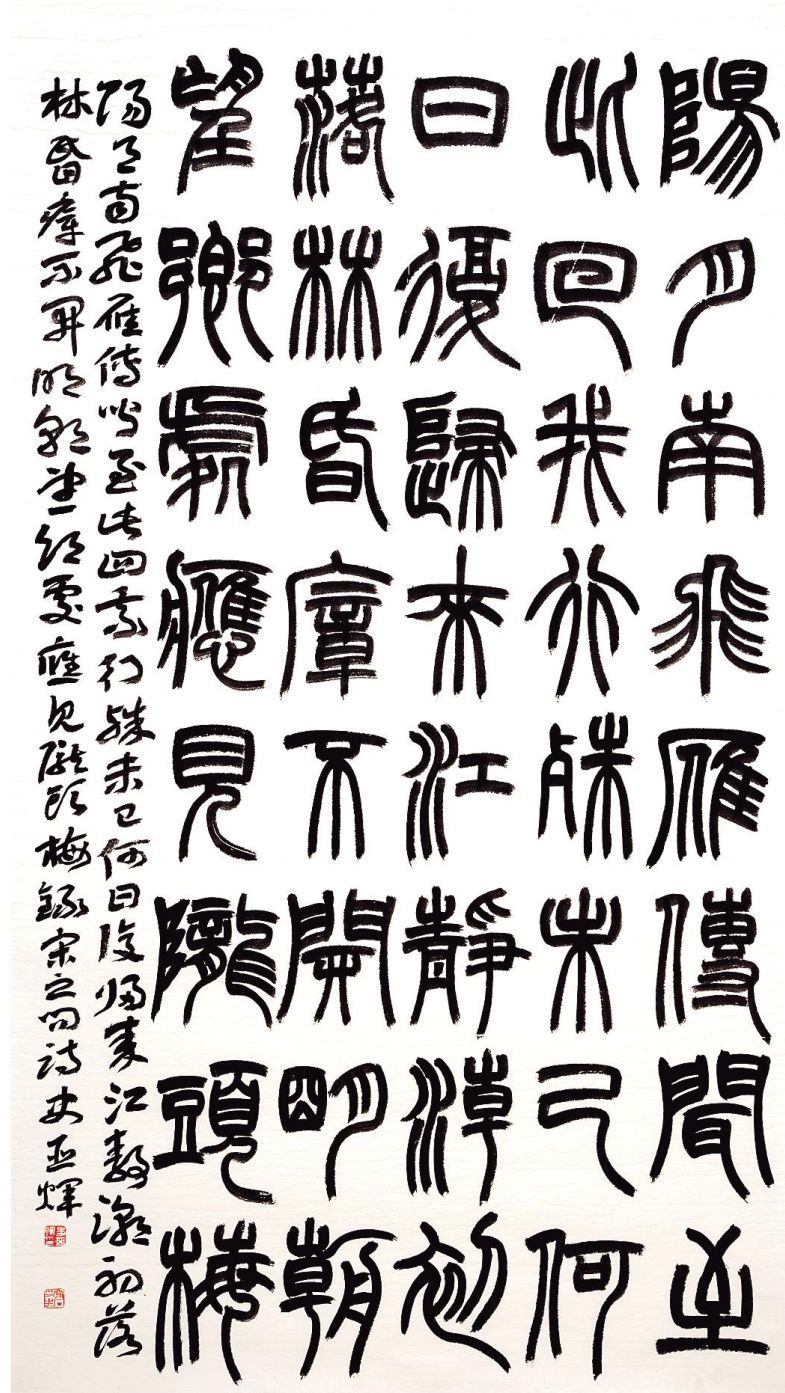 陽月南飛雁傳聞至
此回我行殊未已何
日復歸來江靜潮初
落林昏瘴不開明朝
望鄉處應見隴頭梅
陽月南飛雁傳聞至此回我行殊未已何日復歸來江靜潮初落
林昏瘴不開明朝望鄉處應見隴頭梅錄宋之問詩史亞煇